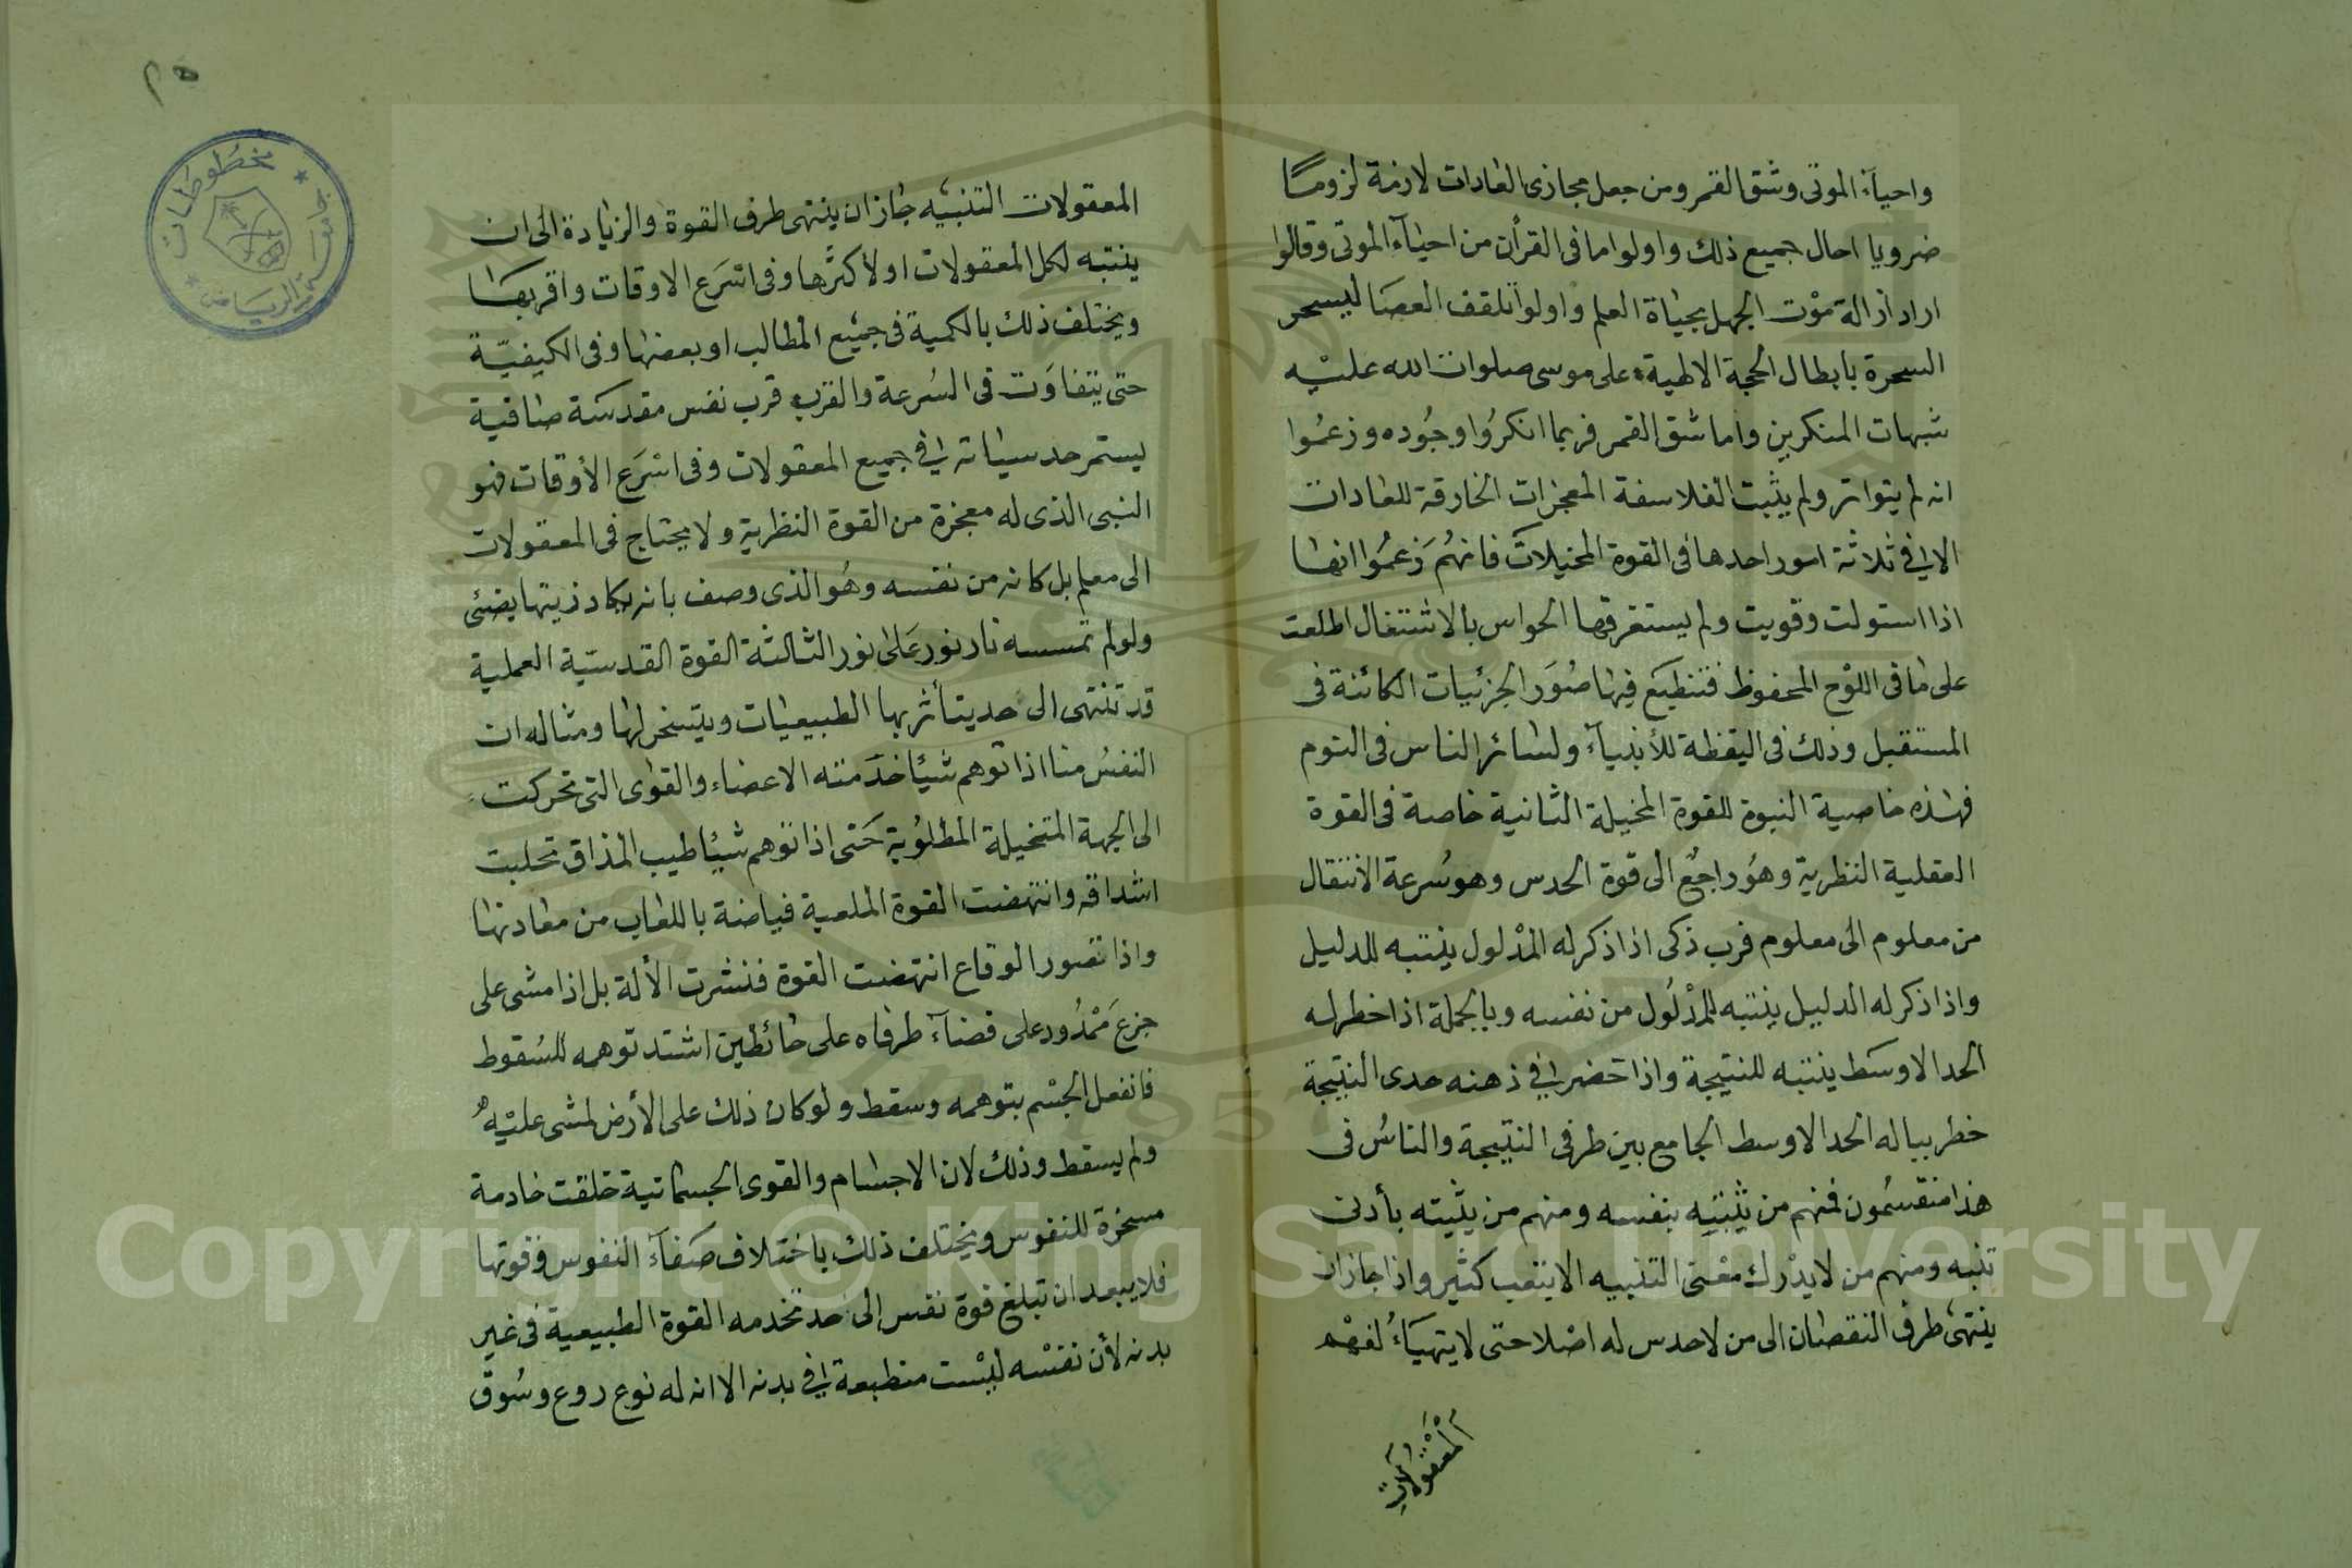 واحيآء الموتى وشق القمر ومن جعل مجازى العادات لازمة لزومًا
ضرويا احال جميع ذلك واولوا ما فى القرأن من احيآء الموتى وقالوا
اراد ازالة موْت الجهل بحياة العلم واولوا تلقف العصَا ليسحر
السحرة بابطال الحجة الالهية على موسى صلوات الله عليْه
شبهات المنكرين واما شق القمر فربما انكرُوا وجُوده وزعمُوا
انه لم يتواتر ولم يثبت الفلاسفة المعجزات الخارقة للعادات
الا فى ثلاثة امور احدها فى القوة المخيلات فانهُم زعمُوا انها
اذا استولت وقويت ولم يستغرقها الحواس بالاشتغال اطلعت
على ما فى اللوْح المحفوظ فتنطبَع فيها صُوَر الجزئيات الكائنة فى
المستقبل وذلك فى اليقظة للأنبيآء ولسائر الناس فى النوم
فهذه خاصية النبوة للقوة المخيلة الثانية خاصة فى القوة
العقلية النظرية وهُو راجعٌ الى قوة الحدس وهو سُرعة الانتقال
من معلوم الى معلوم فرب ذكى اذا ذكر له المدْلول ينتبه للدليل
واذا ذكر له الدليل ينتبه للمدْلُول من نفسه وبالجملة اذا خطر له
الحد الاوسَط ينتبه للنتيجة واذا حضر فى ذهنه حدى النتيجة
خطر بباله الحد الاوسط الجامع بين طرفى النتيجة والناسُ فى
هذا منقسمُون فمنهم من يثبنيَه بنفسه ومنهم من يثبيته بأدنى
تنبه ومنهم من لا يدْرك معْنى التنبيه الا يتعب كثير واذا جاز ان
ينتهىَ طرف النقصان الى من لا حدس له اصْلا حتى لا يتهيَاءُ لفهْم
المعْقولات
٢٥
مخطوطات
جامعة الرياض
المعقولات التنبيه جاز ان ينتهى طرف القوة والزيادة الى ان
ينتبه لكل المعقولات او لأكثرها وفى اسْرَع الاوقات واقربهَا
ويختلف ذلك بالكمية فى جميْع المطالب او بعضها وفى الكيفيّة
حتى يتفاوَت فى السُرعة والقرب قرب نفس مقدسَة صافية
يستمر حدسياته فى جميع المعقولات وفى اسْرَع الأوقات فهو
النبى الذى له معجزة من القوة النظرية ولا يحتاج فى المعقولات
الى معلم بل كانه من نفسه وهُو الذى وصف بانه يكاد زيتها يضئى
ولو لم تمسسه نار نور عَلى نور الثالثة القوة القدسيّة العملية
قد تنتهى الى حد يتأثر بها الطبيعيات ويتسخر لها ومثاله ان
النفسُ منا اذا توهم شيْئًا خدَمته الاعضاء والقوى التى تحركت
الى الجهة المتخيلة المطلوُبة حَتى اذا توهم شيْئا طيب المذاق تحلبت
اشداقه وانتهضت القوة الملعبة فياضة باللعاب من معادنها
واذا تصور الوقاع انتهضت القوة فنشرت الألة بل اذا مشى على
جزعَ ممْدُود على فضآء طرفاه على حائطين اشتد توهمه للسُقوط
فانفعل الجسْم بتوهمه وسقط ولو كان ذلك على الأرض لمشى عليْه
ولم يسقط وذلك لان الاجسام والقوى الجسمانية خلقت خادمة
مسخرة للنفوس ويختلف ذلك باختلاف صَفآء النفوس وقوتها
فلا يبعد ان تبلغ قوة نفس الى حد تخدمه القوة الطبيعية فى غير
بدنه لأن نفسْه ليْست منطبعة فى بدنه الا انه له نوع روع وسُوق
Copyright © King Saud University